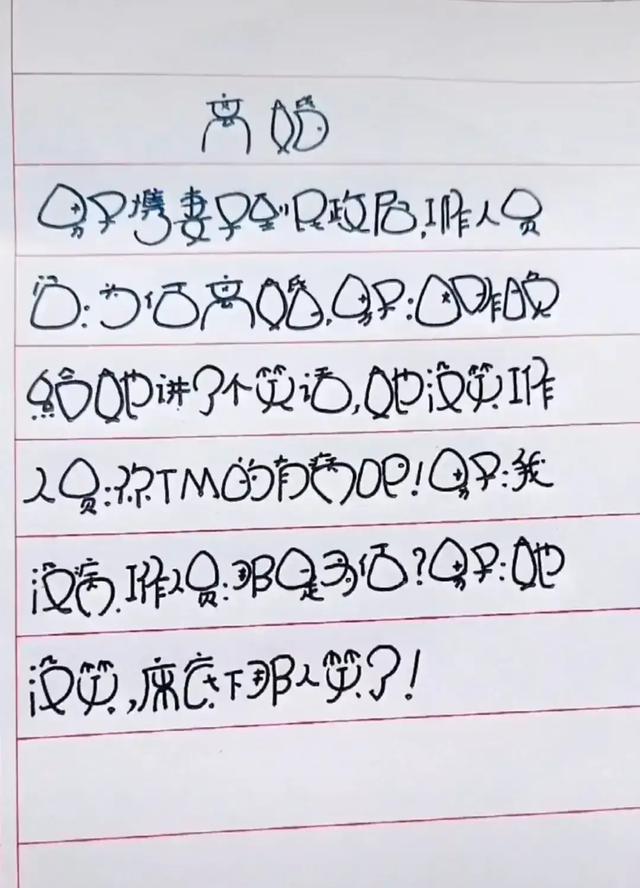 离婚
男子携妻子到民政局,工作人员
问:为何离婚,男子:因昨晚
给她讲了个笑话,她没笑.工作
人员:你TM的有病吧!男子:我
没病.工作人员:那是为何?男子:她
没笑,床底下那人笑了!